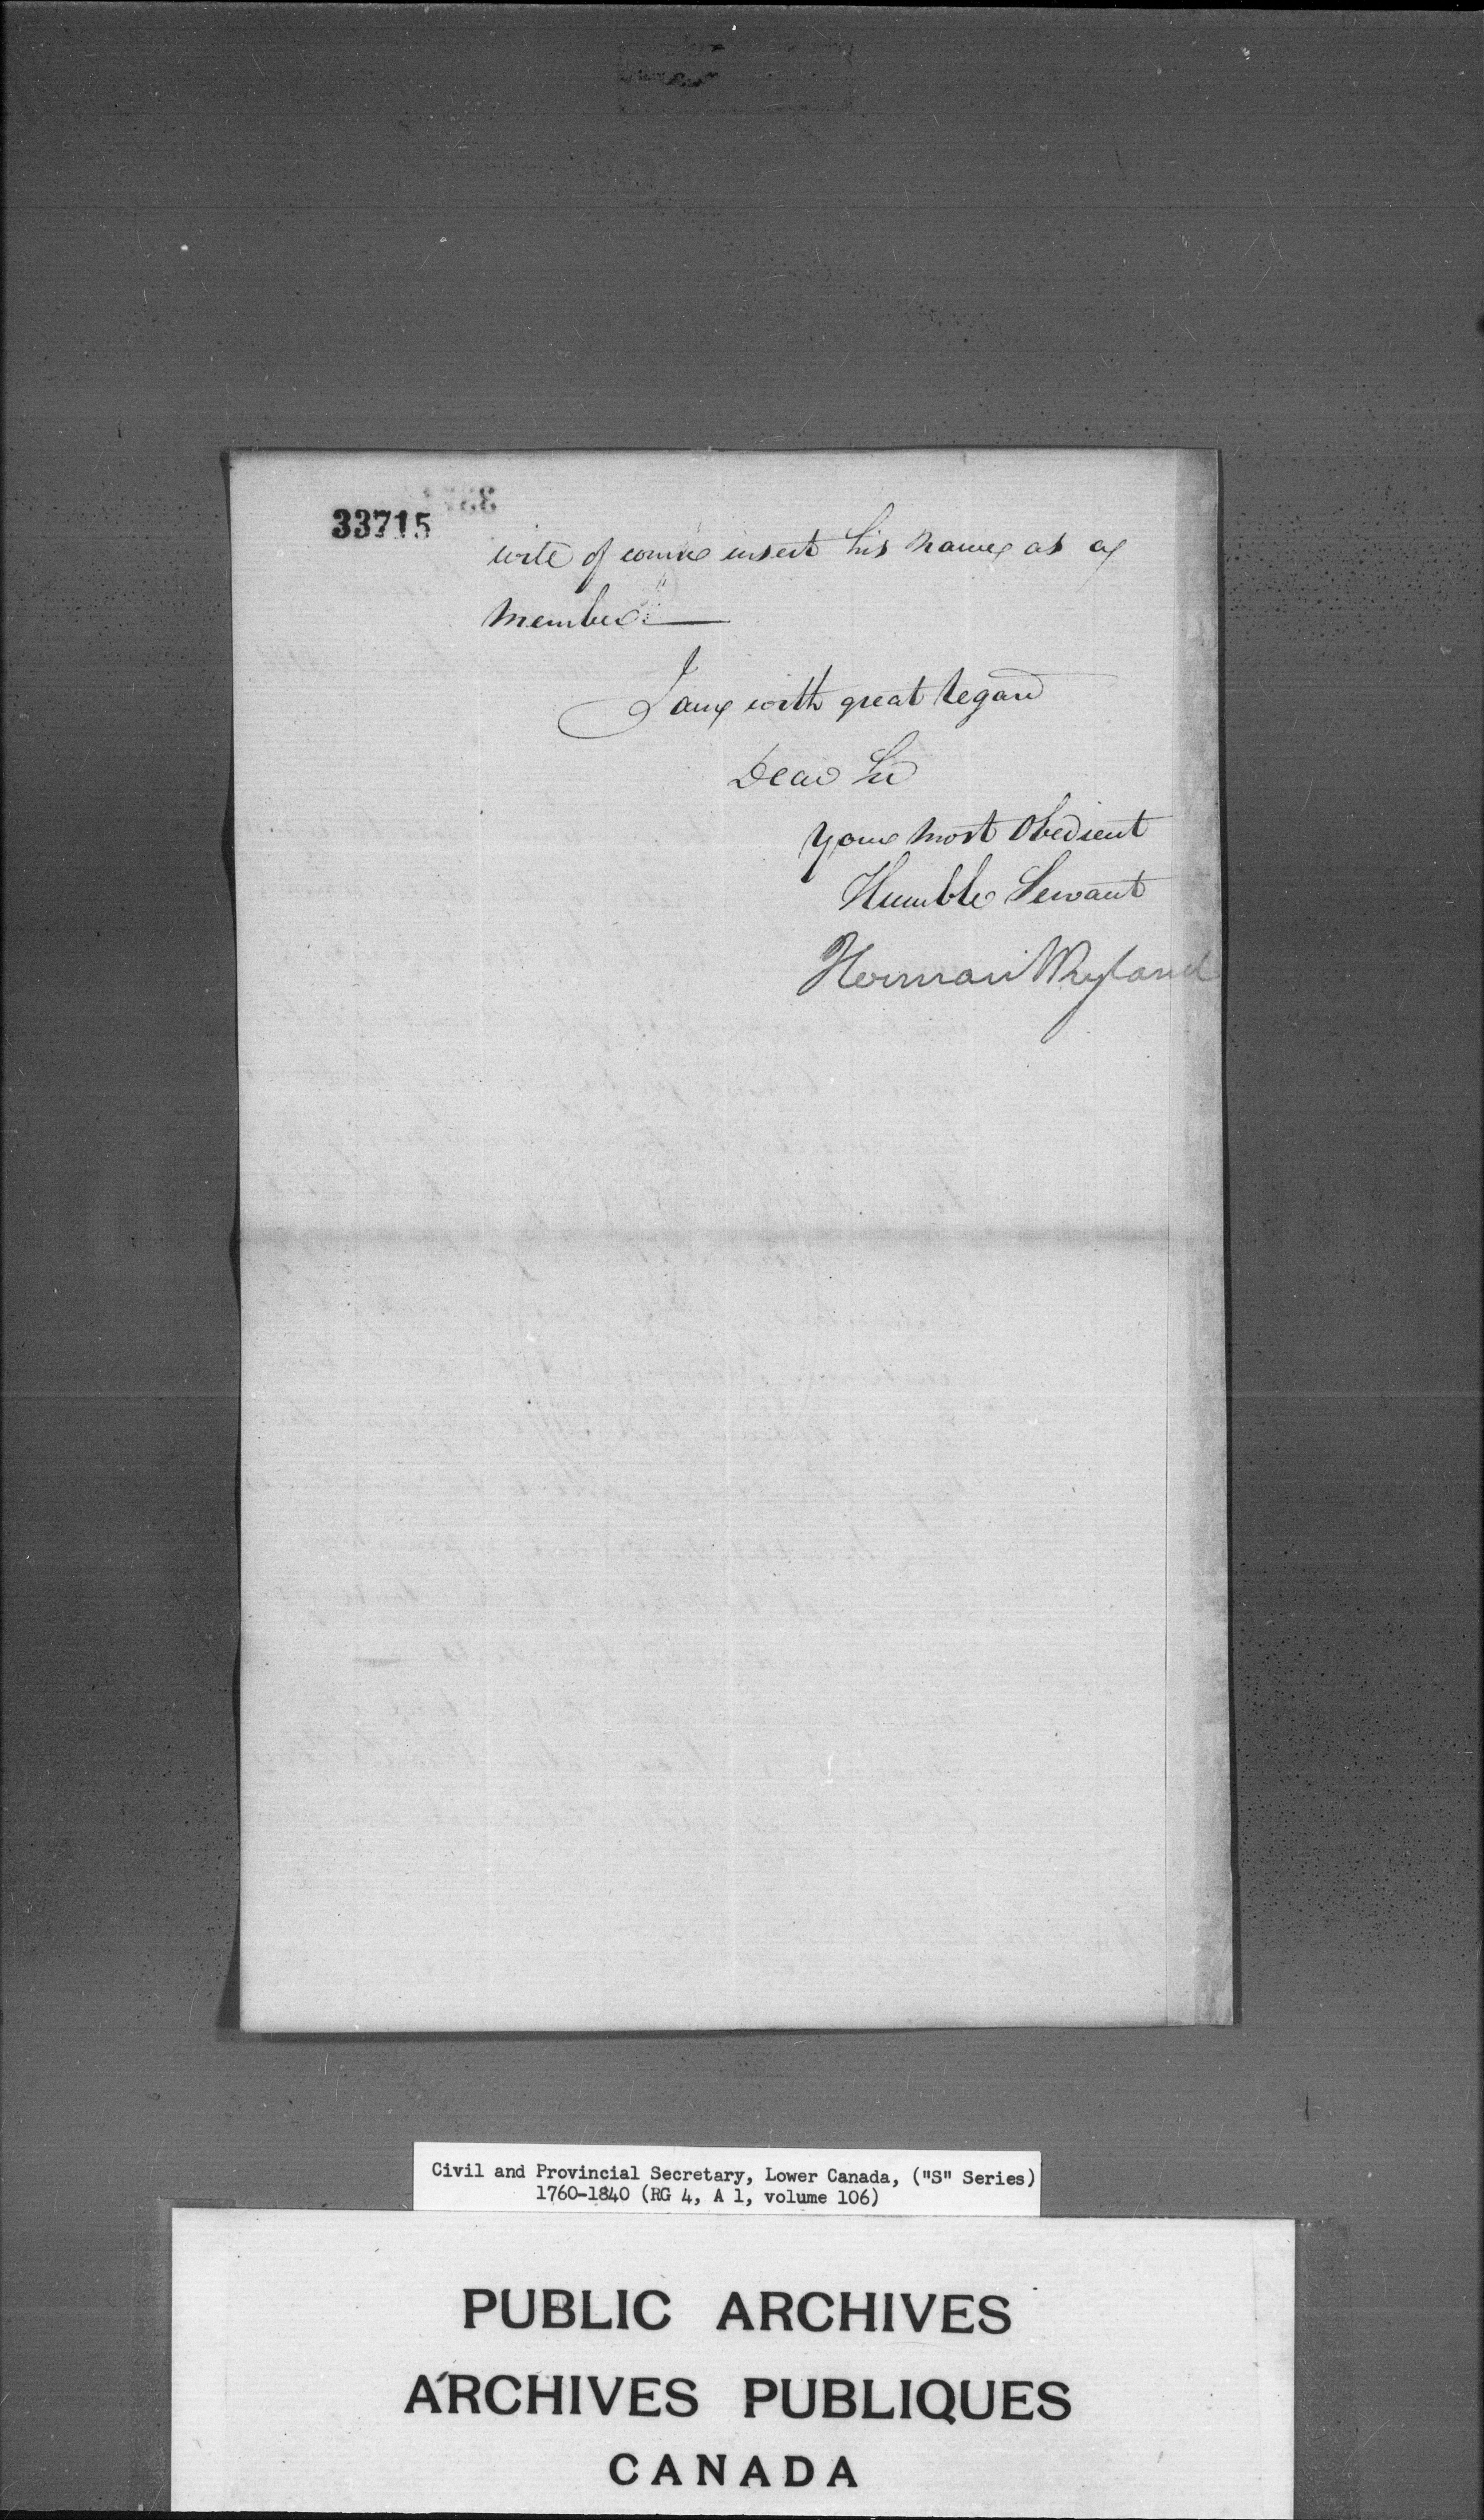 33715
will of course insert his name as a
member."—
I am with great regard
Dear Sir
Your most Obedient
Humble Servant
Herman W Ryland
Civil and Provincial Secretary, Lower Canada, ("S" Series)
1760-1840 (RG 4, A 1, volume 106)
PUBLIC ARCHIVES
ARCHIVES PUBLIQUES
CANADA